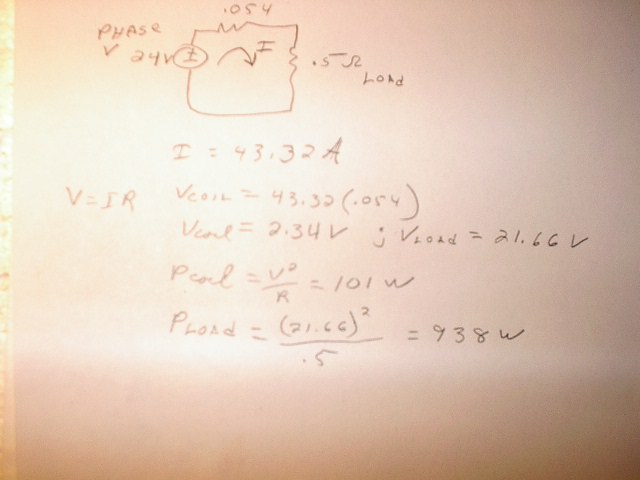 .054
PHASE
V 24V I I .5Ω
LOAD
I = 43.32 A
V=IR Vcoil = 43.32 (.054)
Vcoil = 2.34V ; VLOAD = 21.66 V
Pcoil = V²/R = 101 W
PLOAD = (21.66)²/.5 = 938 W